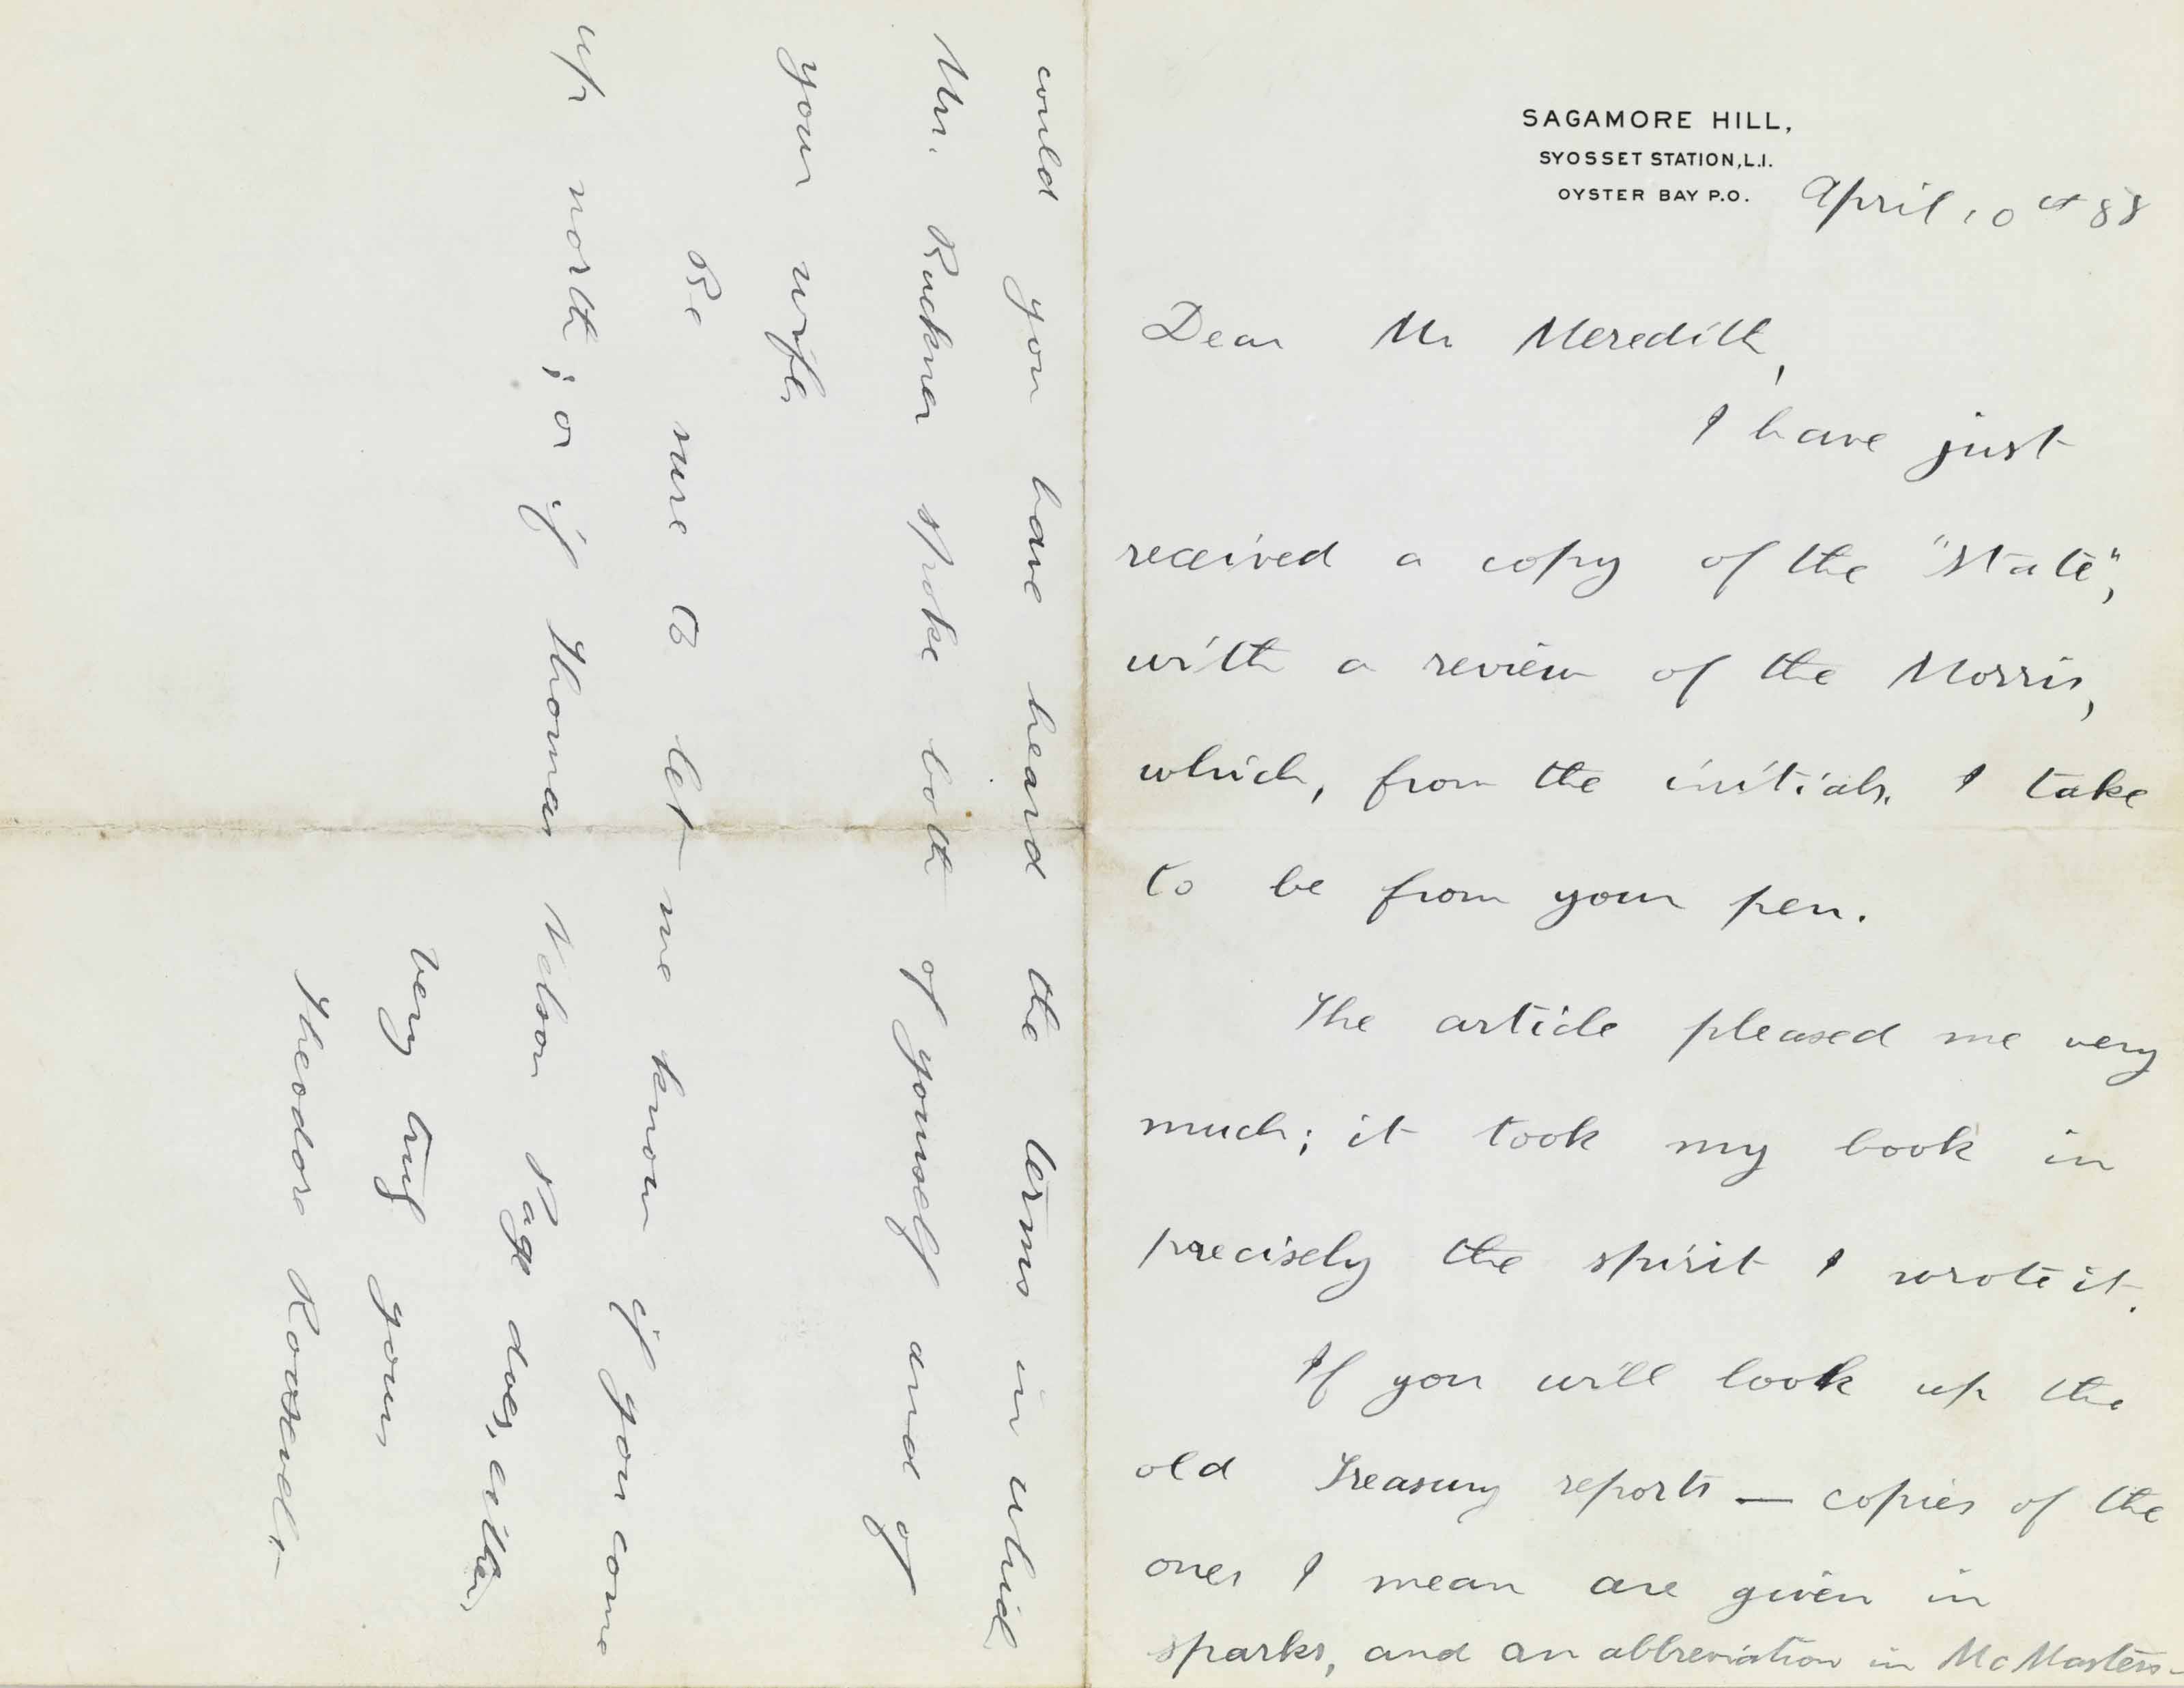 SAGAMORE HILL,
SYOSSET STATION, L.I.
OYSTER BAY P.O.
April 10th 88
Dear Mr Meredith,
I have just
received a copy of the "State",
with a review of the Morris,
which, from the initials, I take
to be from your pen.
The article pleased me very
much; it took my book in
precisely the spirit I wrote it.
If you will look up the
old Treasury reports — copies of the
ones I mean are given in
Sparks, and an abbreviation in McMasters-
could you have heard the terms in which
Mrs. Ruckner spoke both of yourself and of
your wife.
Be sure to let me know if you come
up north; or if Thomas Nelson Page does, either,
Very truly yours
Theodore Roosevelt